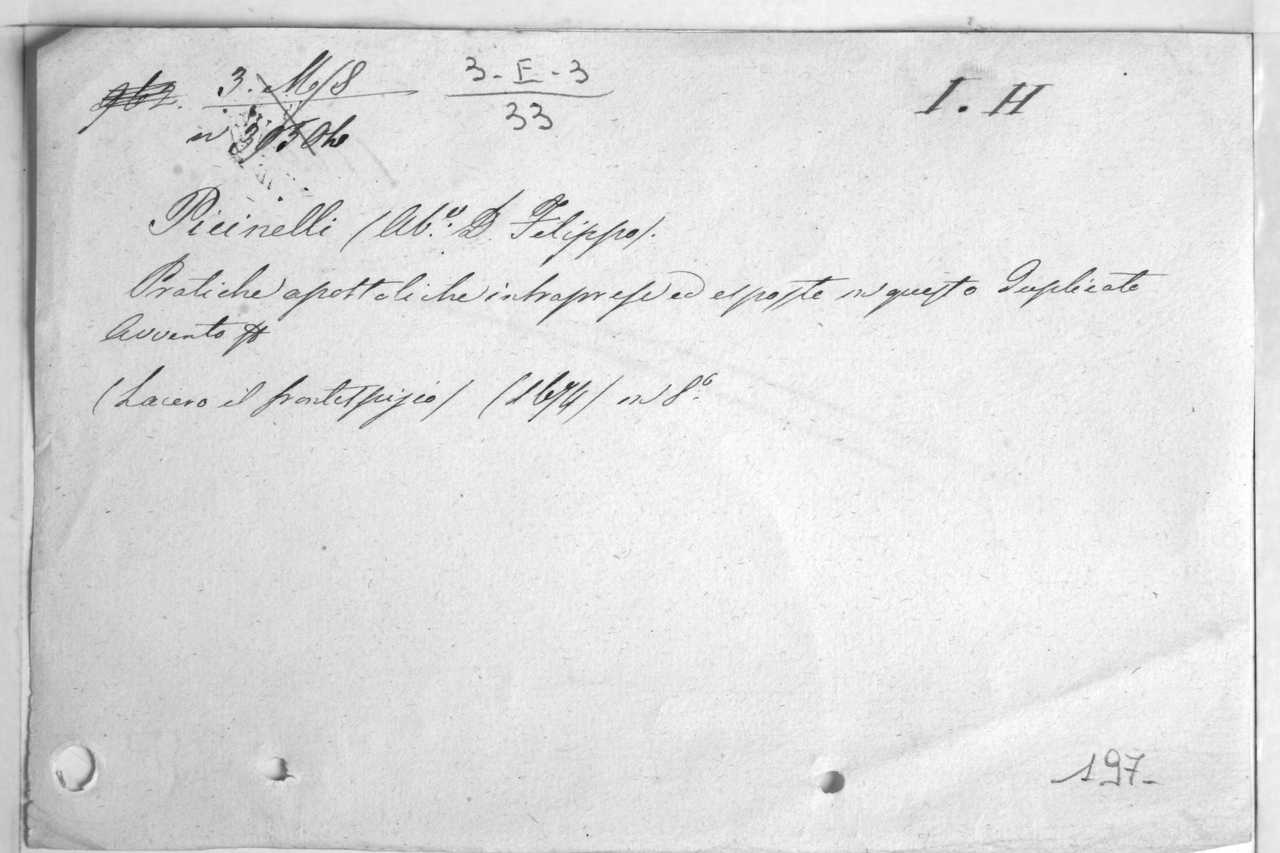 3. M/8 3-E-3 I. H
n 33
Picinelli (Ab.e D. Filippo).
Pratiche apostoliche intraprese ed esposte in questo Duplicato
Avvento
(Lacero il frontespizio) (1674) in 8.o
197-